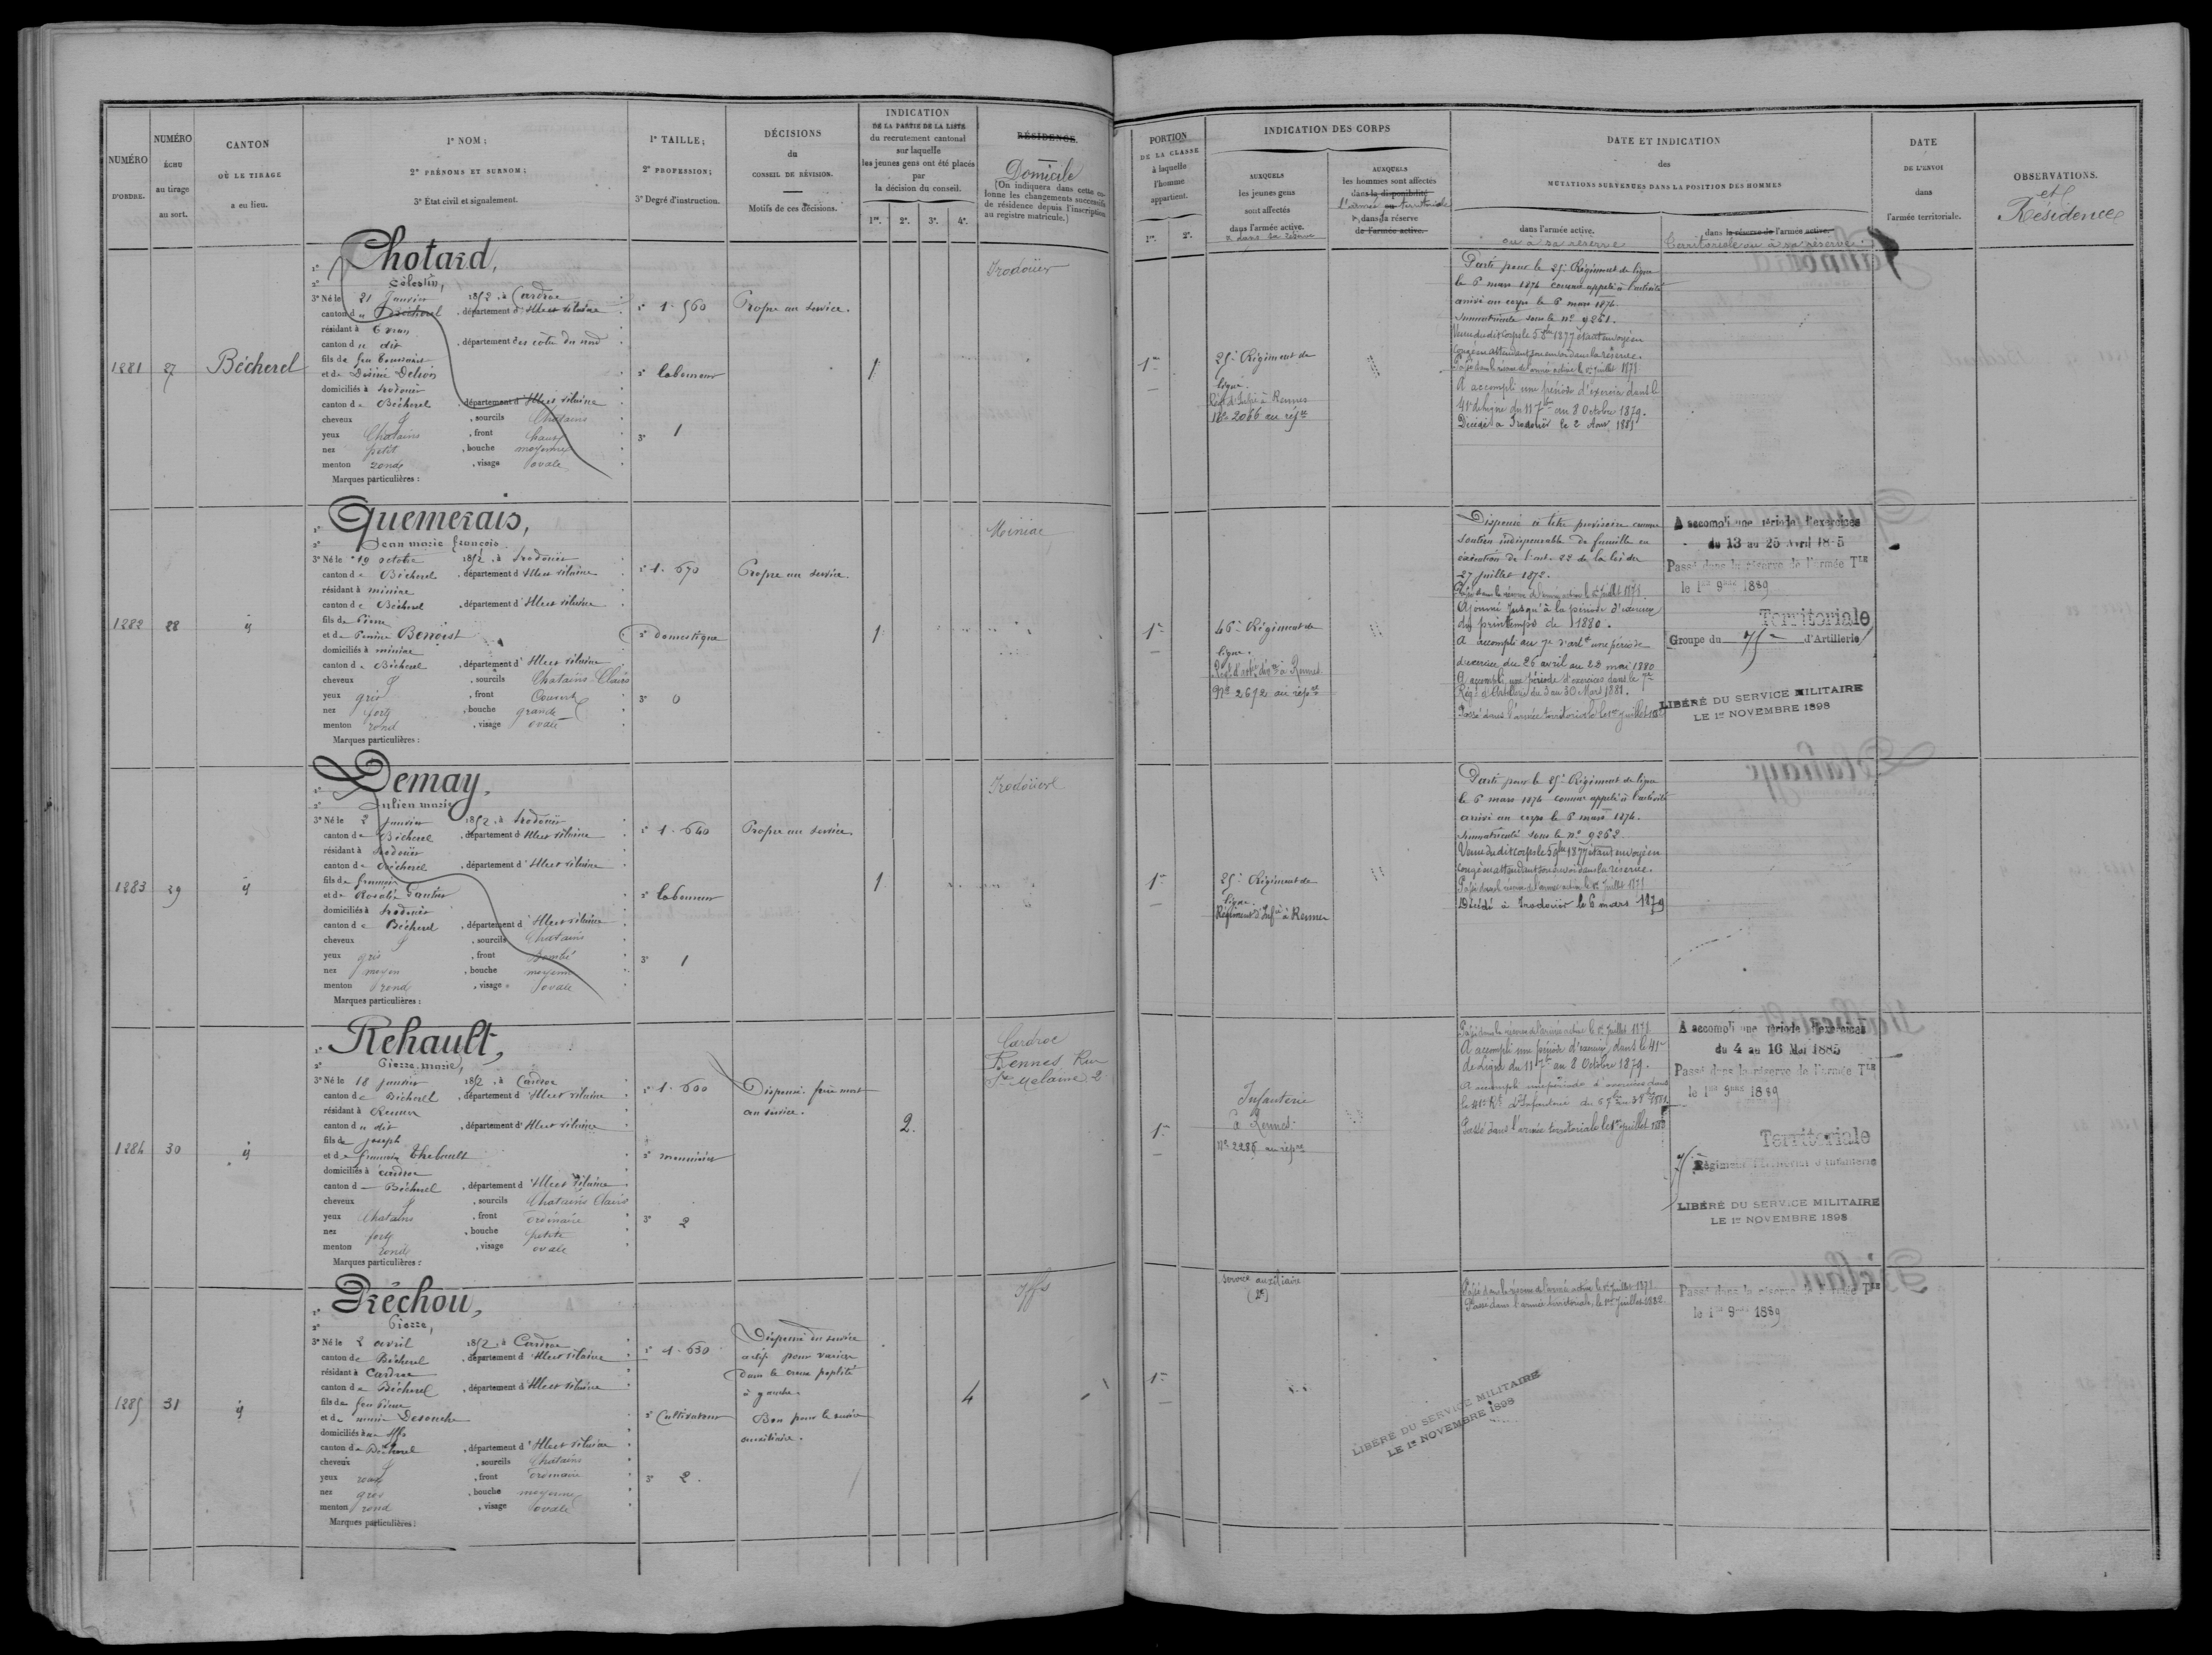 NUMÉRO
D'ORDRE.
NUMÉRO
ÉCHU
au tirage
au sort.
CANTON
OÙ LE TIRAGE
a eu lieu.
1° NOM;
2° PRÉNOMS ET SURNOM;
3° État civil et signalement.
1° TAILLE;
2° PROFESSION;
3° Degré d'instruction.
DÉCISIONS
du
CONSEIL DE RÉVISION.
Motifs de ces décisions.
INDICATION
DE LA PARTIE DE LA LISTE
du recrutement cantonal
sur laquelle
les jeunes gens ont été placés
par
la décision du conseil.
1re. 2e. 3e. 4e.
RÉSIDENCE.
Domicile
(On indiquera dans cette co-
lonne les changements successifs
de résidence depuis l'inscription
au registre matricule.)
PORTION
DE LA CLASSE
à laquelle
l'homme
appartient.
1re. 2e.
INDICATION DES CORPS
AUXQUELS
les jeunes gens
sont affectés
dans l'armée active.
et dans sa réserve
AUXQUELS
les hommes sont affectés
dans la disponibilité
l'armée ou territoriale
dans la réserve
de l'armée active.
DATE ET INDICATION
des
MUTATIONS SURVENUES DANS LA POSITION DES HOMMES
dans l'armée active.
ou à sa réserve
dans la réserve de l'armée active.
territoriale ou à sa réserve.
DATE
DE L'ENVOI
dans
l'armée territoriale.
OBSERVATIONS.
et
Résidences
1281
27
Bécherel
1° Chotard,
2° Célestin,
3° Né le 21 Janvier 1852, à Cardroc
canton de Bécherel, département d'Ille et Vilaine
résidant à Evran
canton du dit, département des côtes du nord
fils de feu
et de Désiré
domiciliés à Irodouër
canton de Bécherel, département d'Ille et Vilaine
cheveux, sourcils Chatains
yeux Chatains, front haut
nez petit, bouche moyenne
menton rond, visage ovale
Marques particulières :
1° 1.560
2° laboureur
3° 1
Propre au service.
1
Irodouër
1re
25e Régiment de
ligne.
Régt d'Infie à Rennes
No 2066 au répre
Parti pour le 25e Régiment de ligne
le 6 mars 1874 comme appelé à l'activité
arrivé au corps le 6 mars 1874.
Immatriculé sous le no 9261.
Venu dudit Corps le 5 9bre 1877 étant envoyé en
Congé en attendant son envoi dans la réserve.
Passé dans la réserve de l'armée active le 1er Juillet 1878
A accompli une période d'exercice dans le
41e de ligne du 11 7bre au 8 Octobre 1879.
Décédé à Irodouër le 2 Aout 1881
1282
28
id
1° Quemerais,
2° Jean marie françois
3° Né le 19 octobre 1852, à Irodouër
canton de Bécherel, département d'Ille et Vilaine
résidant à miniac
canton de Bécherel, département d'Ille et Vilaine
fils de Pierre
et de Perrine Benoist
domiciliés à miniac
canton de Bécherel, département d'Ille et Vilaine
cheveux, sourcils Chatains Clairs
yeux gris, front Couvert
nez fort, bouche grande
menton rond, visage ovale
Marques particulières :
1° 1.670
2° Domestique
3° 0
Propre au service.
1
Miniac
1re
46e Régiment de
ligne.
Régt d'artie à Rennes
No 2612 au répre
Dispensé à titre provisoire comme
soutien indispensable de famille en
exécution de l'art. 22 de la loi du
27 juillet 1872.
Passé dans la réserve de l'armée active le 1er Juillet 1878.
Ajourné jusqu'à la période d'exercice
du printemps de 1880.
A accompli au 7e d'artie une période
d'exercice du 26 avril au 22 mai 1880
A accompli une période d'exercices dans le 7e
Régt d'Artillerie du 3 au 30 Mars 1881.
Passé dans l'armée territoriale le 1er juillet
A accompli une période d'exercices
du 13 au 25 Avril 1885
Passé dans la réserve de l'armée TLE
le 1er 9bre 1889
Territoriale
Groupe du 75e d'Artillerie
LIBÉRÉ DU SERVICE MILITAIRE
LE 1er NOVEMBRE 1898
1283
29
id
1° Demay,
2° Julien marie
3° Né le 2 janvier 1852, à Irodouër
canton de Bécherel, département d'Ille et Vilaine
résidant à Irodouër
canton de Bécherel, département d'Ille et Vilaine
fils de françois
et de Rosalie Gautier
domiciliés à Irodouër
canton de Bécherel, département d'Ille et Vilaine
cheveux, sourcils Chatains
yeux gris, front Bombé
nez moyen, bouche moyenne
menton rond, visage ovale
Marques particulières :
1° 1.640
2° laboureur
3° 1
Propre au service.
1
Irodouër
1re
25e Régiment de
ligne.
Régiment d'Infie à Rennes
Parti pour le 25e Régiment de ligne
le 6 mars 1874 comme appelé à l'activité
arrivé au corps le 6 mars 1874.
Immatriculé sous le no 9262.
Venu dudit corps le 5 9bre 1877 étant envoyé en
congé en attendant son envoi dans la réserve.
Passé dans la réserve de l'armée active le 1er Juillet 1878
Décédé à Irodouër le 6 mars 1879
1284
30
id
1° Rehault,
2° Pierre marie,
3° Né le 18 janvier 1852, à Cardroc
canton de Bécherel, département d'Ille et Vilaine
résidant à Rennes
canton du dit, département d'Ille et Vilaine
fils de joseph
et de françoise Thebault
domiciliés à Cardroc
canton de Bécherel, département d'Ille et Vilaine
cheveux, sourcils Chatains Clairs
yeux Chatains, front ordinaire
nez fort, bouche petite
menton rond, visage ovale
Marques particulières :
1° 1.600
2° menuisier
3° 2
Dispensé. frère mort
au service.
2.
Cardroc
Rennes Rue
St Melaine 2
1re
Infanterie
à Rennes
No 2285 au répre
Passé dans la réserve de l'armée active le 1er Juillet 1878
A accompli une période d'exercice dans le 41e
de Ligne du 11 7bre au 8 Octobre 1879.
A accompli une période d'exercices dans
le 41e Rt d'Infanterie
Passé dans l'armée territoriale le 1er juillet
A accompli une période d'exercices
du 4 au 16 Mai 1885
Passé dans la réserve de l'armée TLE
le 1er 9bre 1889
Territoriale
75 Régiment Territorial d'Infanterie
LIBÉRÉ DU SERVICE MILITAIRE
LE 1er NOVEMBRE 1898
1285
31
id
1° Préchou,
2° Pierre,
3° Né le 2 avril 1852, à Cardroc
canton de Bécherel, département d'Ille et Vilaine
résidant à Cardroc
canton de Bécherel, département d'Ille et Vilaine
fils de feu Pierre
et de marie Desouche
domiciliés à Iffs
canton de Bécherel, département d'Ille et Vilaine
cheveux, sourcils Chatains
yeux roux, front ordinaire
nez gros, bouche moyenne
menton rond, visage ovale
Marques particulières :
1° 1.630
2° Cultivateur
3° 2.
Dispensé du service
actif pour varices
dans le creux poplité
à gauche.
Bon pour le service
auxiliaire.
4
Iffs
1re
service auxiliaire
(2e)
Passé dans la réserve de l'armée active le 1er Juillet 1878
Passé dans l'armée territoriale, le 1er Juillet 1882.
Passé dans la réserve de l'armée TLE
le 1er 9bre 1889
LIBÉRÉ DU SERVICE MILITAIRE
LE 1er NOVEMBRE 1898